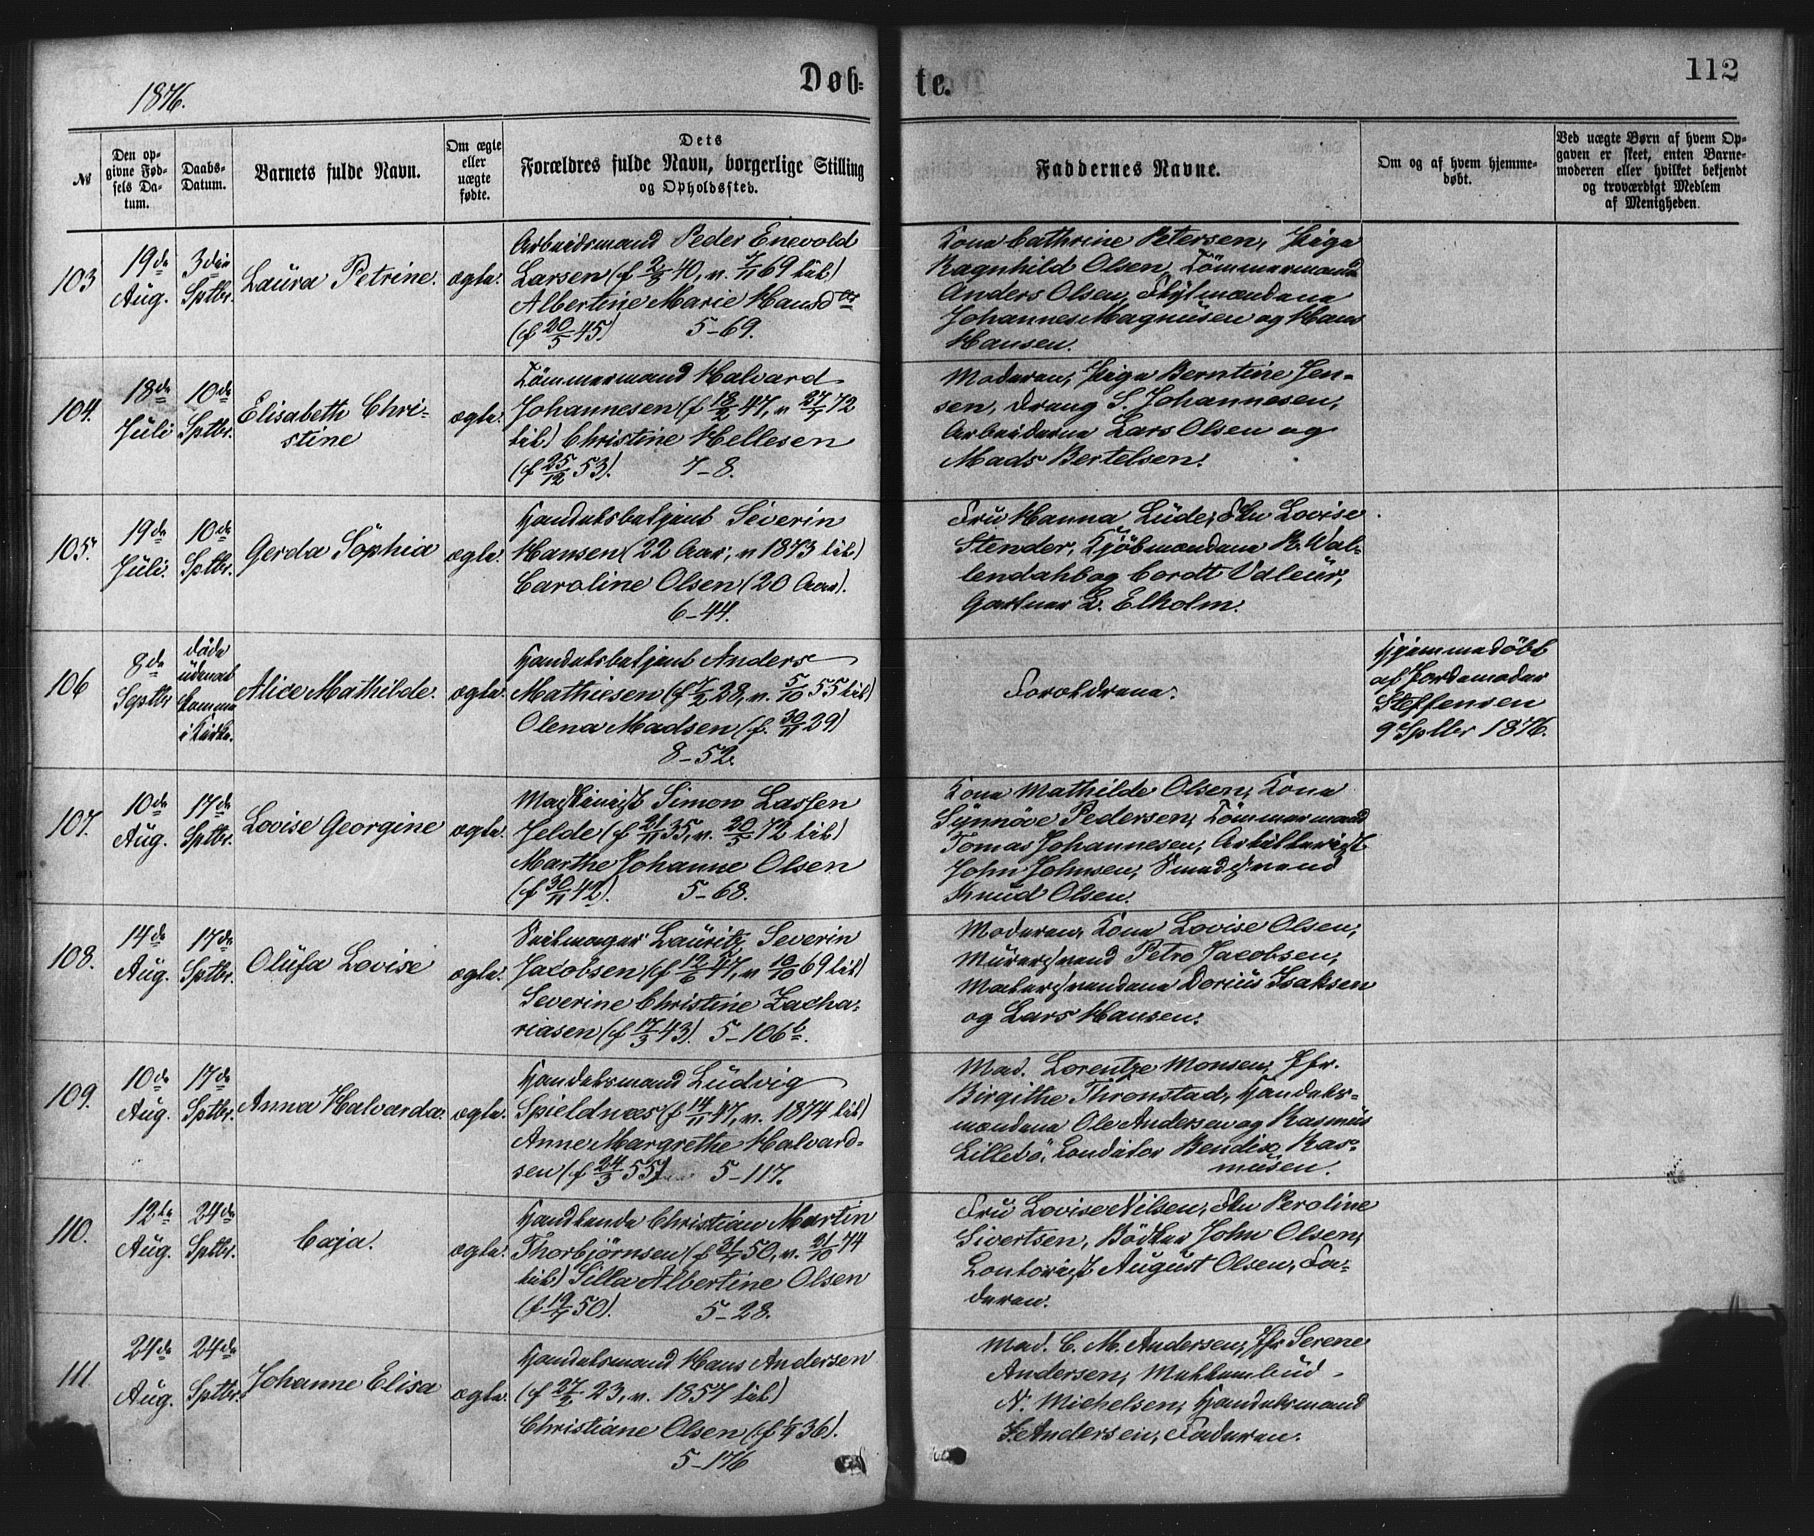 1876.
Døb-
te.
112
№
Den op-
givne Fød-
sels Da-
tum.
Daabs-
Datum.
Barnets fulde Navn.
Om ægte
eller
uægte
fødte.
Dets
Forældres fulde Navn, borgerlige Stilling
og Opholdssted.
Faddernes Navne.
Om og af hvem hjemme-
døbt.
Ved uægte Børn af hvem Op-
gaven er skeet, enten Barne-
moderen eller hvilket bekjendt
og troværdigt Medlem
af Menigheden.
103
19de
Aug.
3die
Sptbr.
Laura Petrine.
ægte.
Arbeidsmand Peder Enevold
Larsen (f 2/3 40, v. 7/11 69 til)
Albertine Marie Hansdtr
(f 20/5 45) 5-69.
Kone Cathrine Petersen, Pige
Ragnhild Olsen, Tömmermand
Anders Olsen,
Johannes Magnusen og Hans
Hansen.
104.
18de
Juli
10de
Sptbr.
Elisabeth Chri-
stine
ægte.
Tömmermand Halvard
Johannesen (f 18/2 47, v 27/7 72
til) Christine Hellesen
(f 25/12 53). 7-8.
Moderen, Pige Berntine Jen-
sen, Dreng S. Johannesen,
Arbeiderne Lars Olsen og
Mads Bertelsen.
105.
19de
Juli.
10de
Sptbr.
Gerda Sophia
ægte.
Handelsbetjent Severin
Hansen (22 Aar, v 1873 til)
Caroline Olsen (20 Aar).
6-44.
Fru Hanna Lude, Frk Lovise
Stender, Kjöbmændene R. Wal-
lendahl og Cordt Udleur,
Gartner L. Elholm.
106
8de
Septbr
döde
udenat
komme
i Kirke.
Alice Mathilde.
ægte.
Handelsbetjent Anders
Mathiesen (f 7/2 28, v. 5/10 55 til)
Olena Madsen (f. 30/11 29)
8-52.
Forældrene.
Hjemmedöbt
af Jordemoder
Steffensen
9 Sptbr 1876.
107.
10de
Aug.
17de
Sptbr.
Lovise Georgine
ægte.
Maskinist Simon Lassen
Jelde (f 21/11 35, v. 20/5 72 til)
Marthe Johanne Olsen
(f 30/11 42). 5-68.
Kone Mathilde Olsen, Kone
Synnöve Pedersen, Tömmermand
Tomas Johannesen, Artillerist
John Johnsen, Smedsvend
Knud Olsen.
108.
14de
Aug.
17de
Sptbr.
Olufa Lovise
ægte.
Seilmager Lauritz Severin
Jacobsen (f 12/6 47, v 10/10 69 til)
Severine Christine Zacha-
riasen (f 17/3 43). 5-106b.
Moderen, Kone Lovise Olsen,
Murersvend Petro Jacobsen,
Malersvendene Dorius Isaksen
og Lars Hansen.
109.
10de
Aug.
17de
Sptbr.
Anna Halvarda.
ægte.
Handelsmand Ludvig
Spieldnæs (f 14/11 47, v. 1874 til)
Anne Margrethe Halvard-
sen (f 24/3 55) 5-117.
Mad. Lorentze Monsen, Jfr.
Birgithe Thronstad, Handels-
mændene Ole Andersen og Rasmus
Lillebö, Conditor Bendix Ras-
musen.
110.
12te
Aug.
24de
Sptbr.
Caja.
ægte.
Handlende Christian Martin
Thorbjörnsen (f 31/7 50, v. 21/10 74
til) Silla Albertine Olsen
(f 19/7 50). 5-28.
Fru Lovise Nilsen, Frk Peroline
Sivertsen, Bödker John Olsen,
Contorist August Olsen, Fa-
deren.
111
24de
Aug.
24de
Sptbr.
Johanne Elisa
ægte.
Handelsmand Hans Andersen
(f 27/2 23, v. 1857 til)
Christiane Olsen (f 1/5 36).
5-176
Mad. C. M. Andersen, Jfr Serene
Andersen, Mæklerbud
N. Michelsen, Handelsmand
J. Andersen, Faderen.